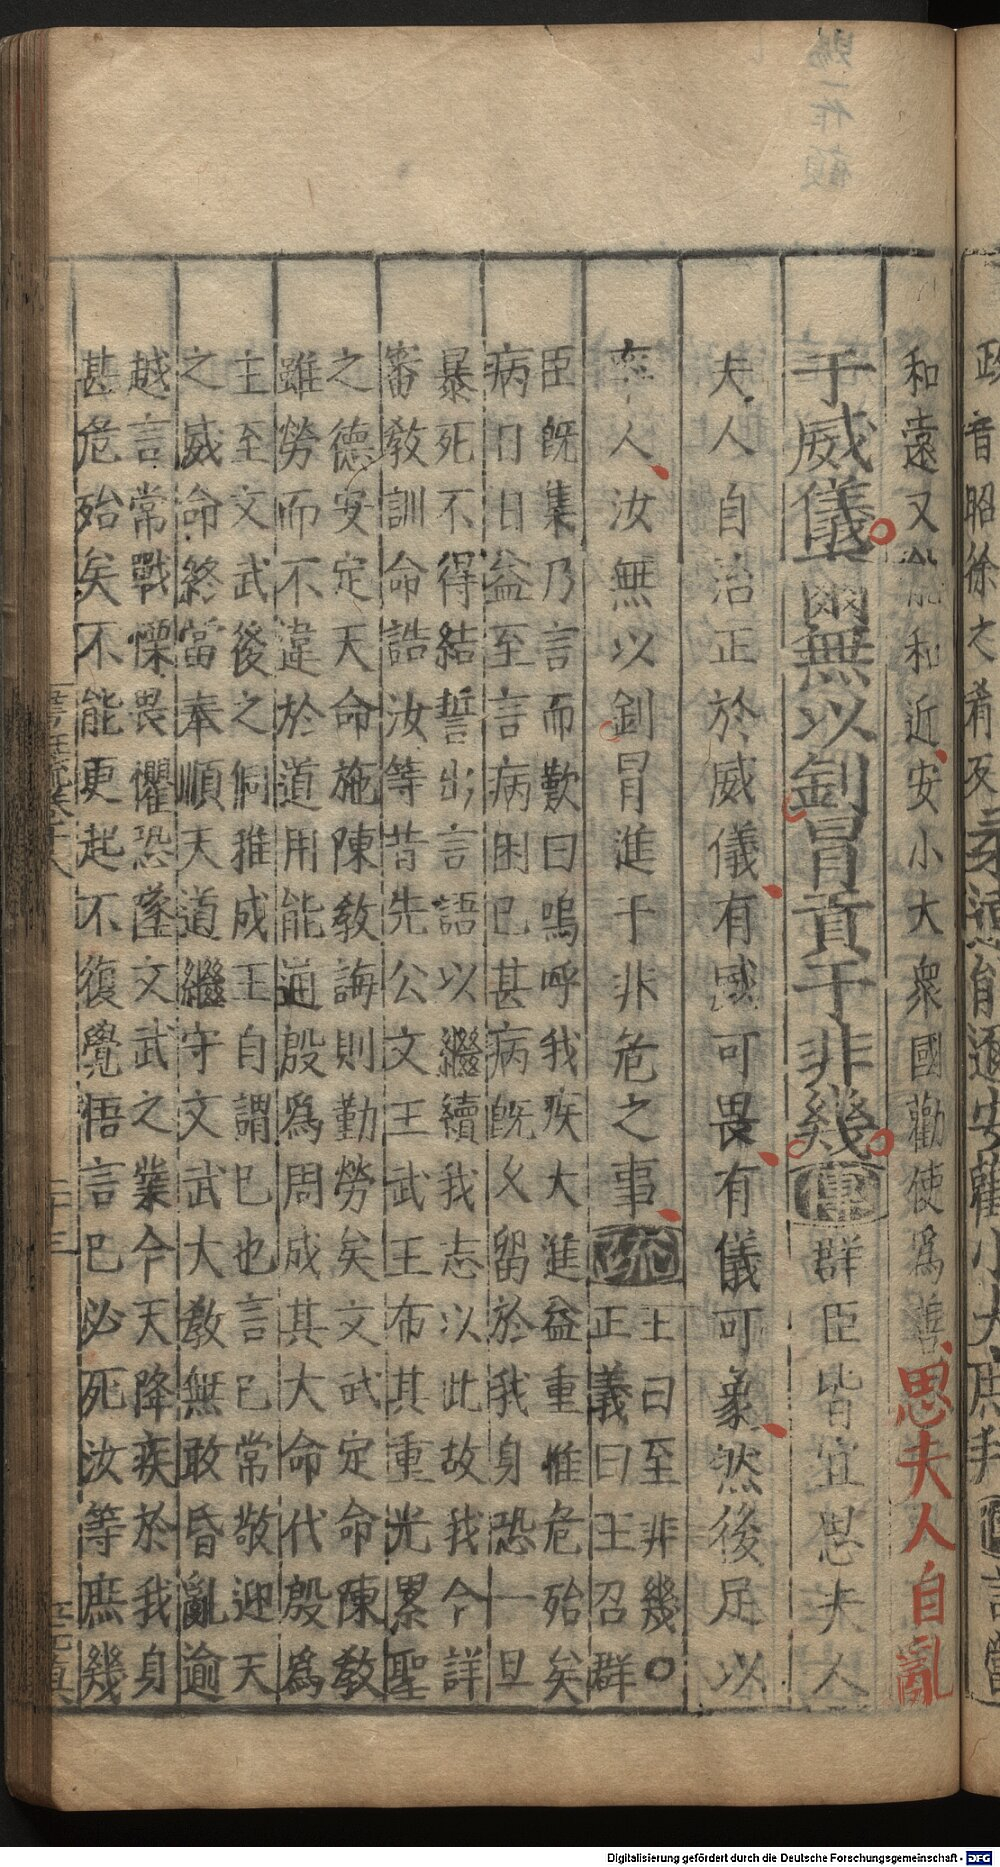 和遠又能和近安小大衆國勸使爲善思夫人自亂
于威儀爾無以釗冒貢于非幾傳群臣皆宜思夫人
夫人自治正於威儀有威可畏有儀可象然後足以
率人汝無以釗冒進于非危之事疏
王曰至非幾○
正義曰王召群
臣既集乃言而歎曰嗚呼我疾大進益重惟危殆矣
病日日益至言病困已甚病既久留於我身恐一旦
暴死不得結誓出言語以繼續我志以此故我今詳
審教訓命誥汝等昔先公文王武王布其重光累聖
之德安定天命施陳教誨則勤勞矣文武定命陳教
雖勞而不違於道用能通殷爲周成其大命代殷爲
主至文武後之侗稚成王自謂已也言已常敬迎天
之威命終當奉順天道繼守文武大教無敢昏亂逾
越言常戰慄畏懼恐墜文武之業今天降疾於我身
甚危殆矣不能更起不復覺悟言已必死汝等庶幾
Digitalisierung gefördert durch die Deutsche Forschungsgemeinschaft - DFG